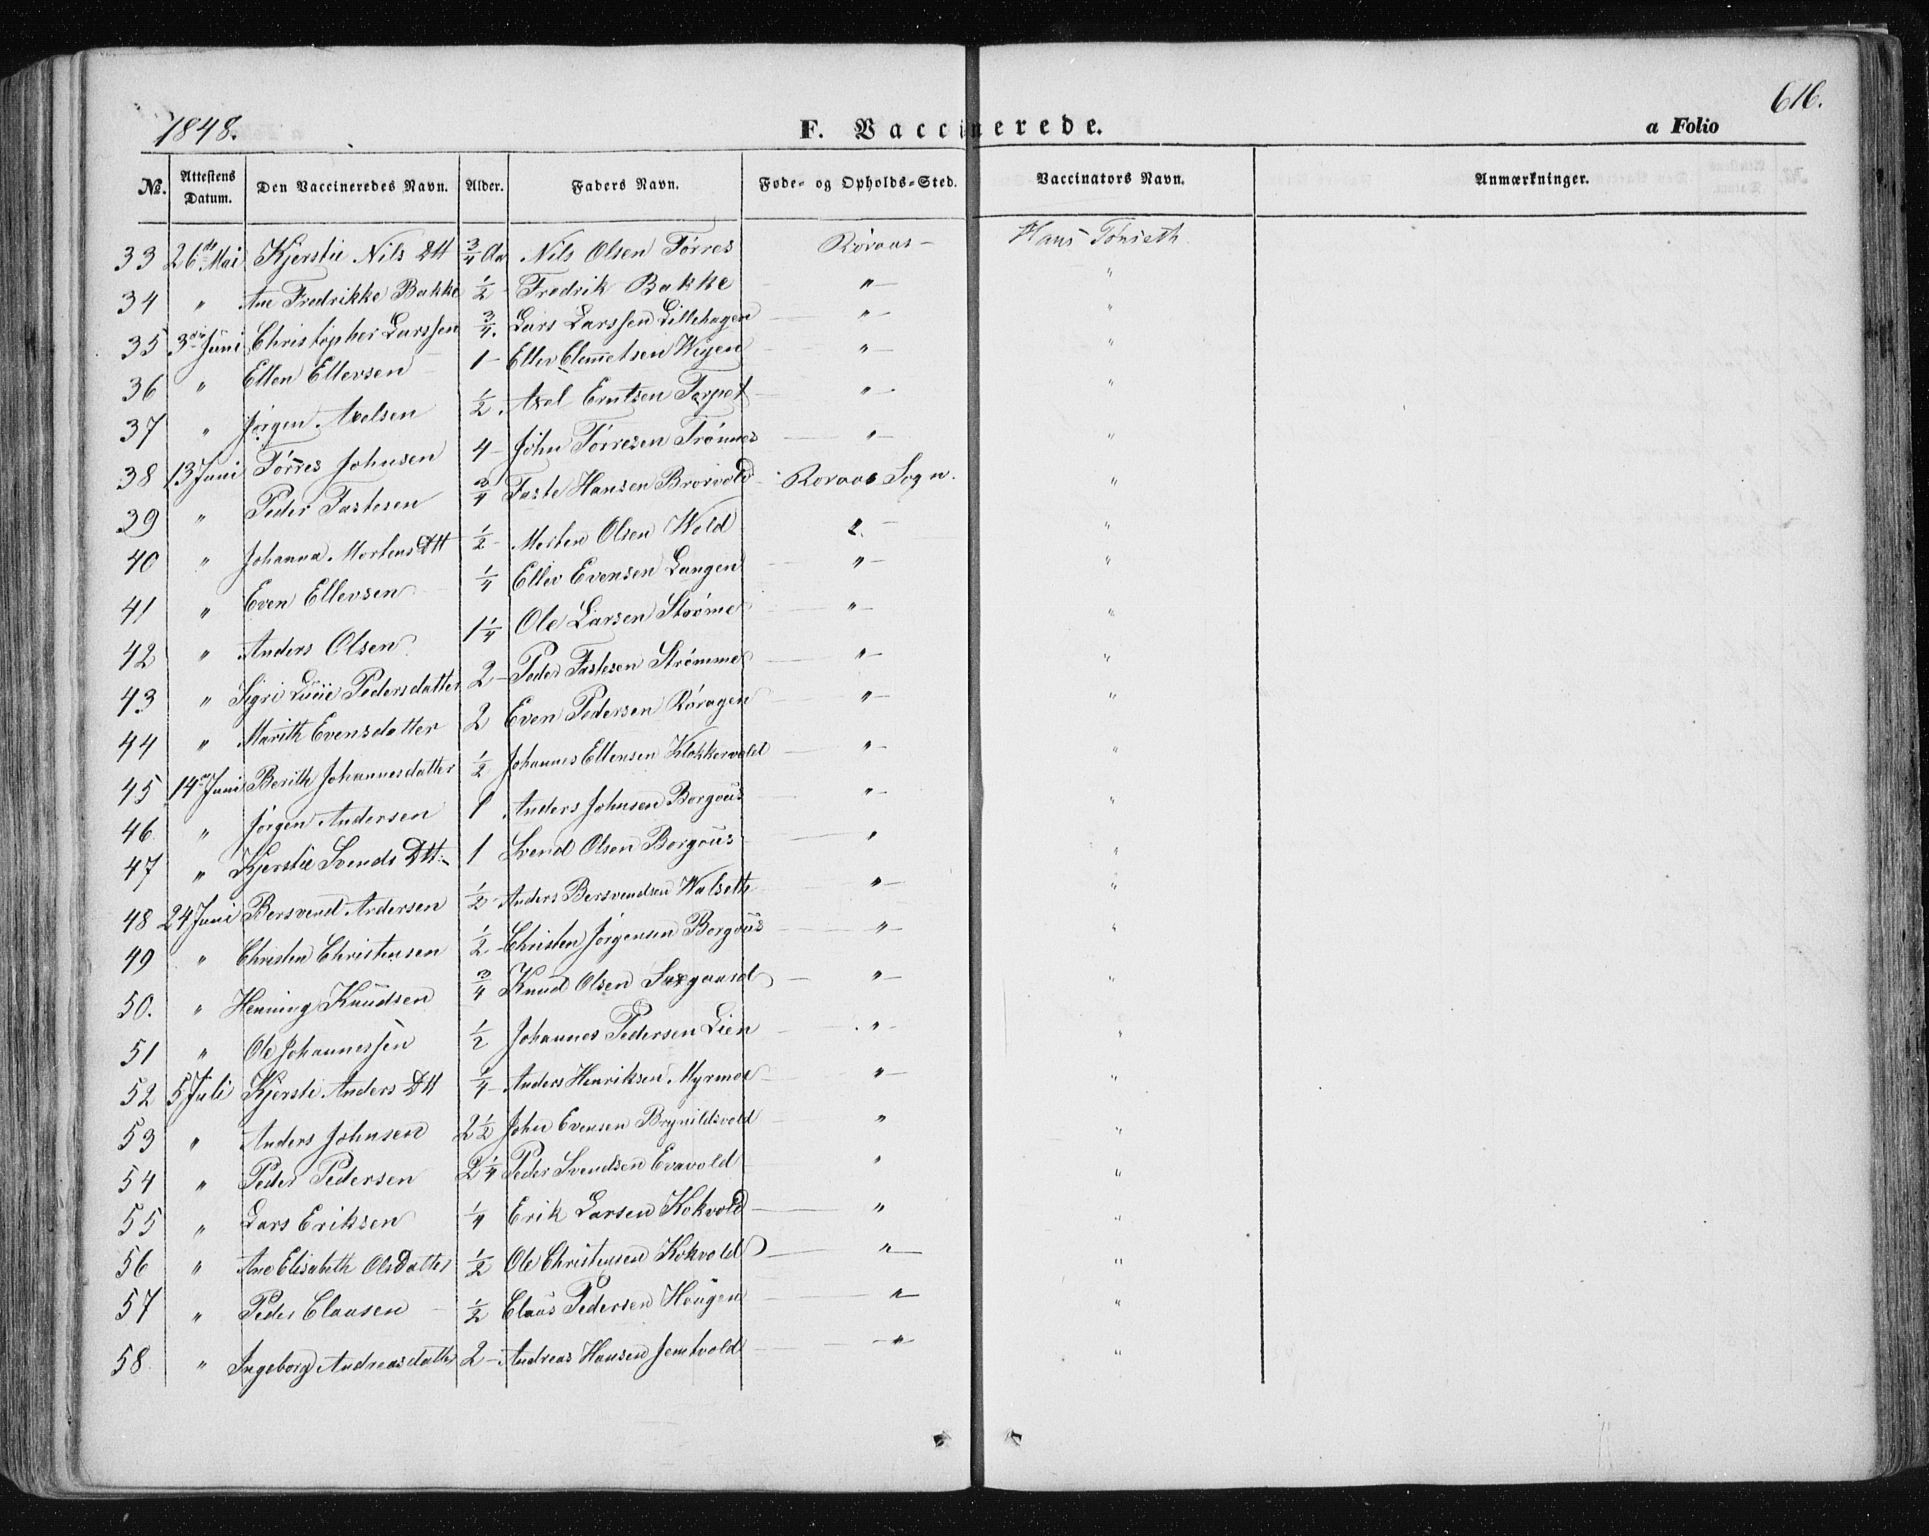 616.
1848. F. Vaccinerede. a Folio
No. Attestens Datum. Den Vaccineredes Navn. Alder. Faders Navn. Føde- og Opholds-Sted. Vaccinators Navn. Anmærkninger.
33 26de Mai Kjerstie Nils Dtt 3/4 Aar Nils Olsen Tørres Røraas - Hans Tønseth
34 " Ane Fredrikke Bakke 1/2 - Fredrik Bakke - " - "
35 3die Juni Christopher Larssen 3/4. Lars Larssen Lillehagen - " - "
36 " Ellen Ellevsen 1 - Ellev Clemetsen Wigen - " - "
37 " Jørgen Axelsen 1/2. Axel Erntsen Torpet - " - "
38 13 Juni Tørres Johnsen 4 - John Tørresen Trønnes - " - "
39 " Peder Fastesen 3/4 Faste Hansen Brorvold - Røraas Sogn. "
40 " Johanna Mortens Dtt 1/2 - Morten Olsen Wold " - "
41 " Even Ellevsen 1/4 Ellev Evensen Langen - " - "
42 " Anders Olsen 1 1/4 Ole Larsen Strøme - " - "
43 " Sigri Lucie Pedersdatter 2 - Peder Fastesen Strømme - " - "
44 " Marith Evensdatter 2 Even Pedersen Røragen - " - "
45 14de Juni Berith Johannesdatter 1/2 Johannes Ellensen Klokkervold - " - "
46 " Jørgen Andersen 1 Anders Johnsen Borgos - " - "
47 " Kjerstie Svends Dtt. 1 Svend Olsen Borgos - " "
48 24 Juni Bersvend Andersen 1/2 - Anders Bersvendsen Walseth - " - "
49 " Christen Christensen 1/2 - Christen Jørgensen Borgos - " - "
50. " Henning Knudsen 3/4 Knud Olsen Saxgaard - " - "
51 " Ole Johannessen 1/2 Johannes Pedersen Lien - " - "
52 5 Juli Kjersti Anders Dtt 1/4 - Anders Henriksen Myrmoe - " - "
53 " Anders Johnsen 2 1/2 John Evensen Brynildsvold " "
54 " Peder Pedersen 2 1/4 Peder Svendsen Evavold " "
55 " Lars Eriksen 1/4 Erik Larsen Kokvold - " "
56 " Ane Elisabeth Olsdatter 1/2 Ole Christensen Kokvold - " - "
57 " Peder Clausen 1/2 Claus Pedersen Hougen - " "
58. " Ingeborg Andreasdatter 2 - Andreas Hansen Jemtvold - " - "